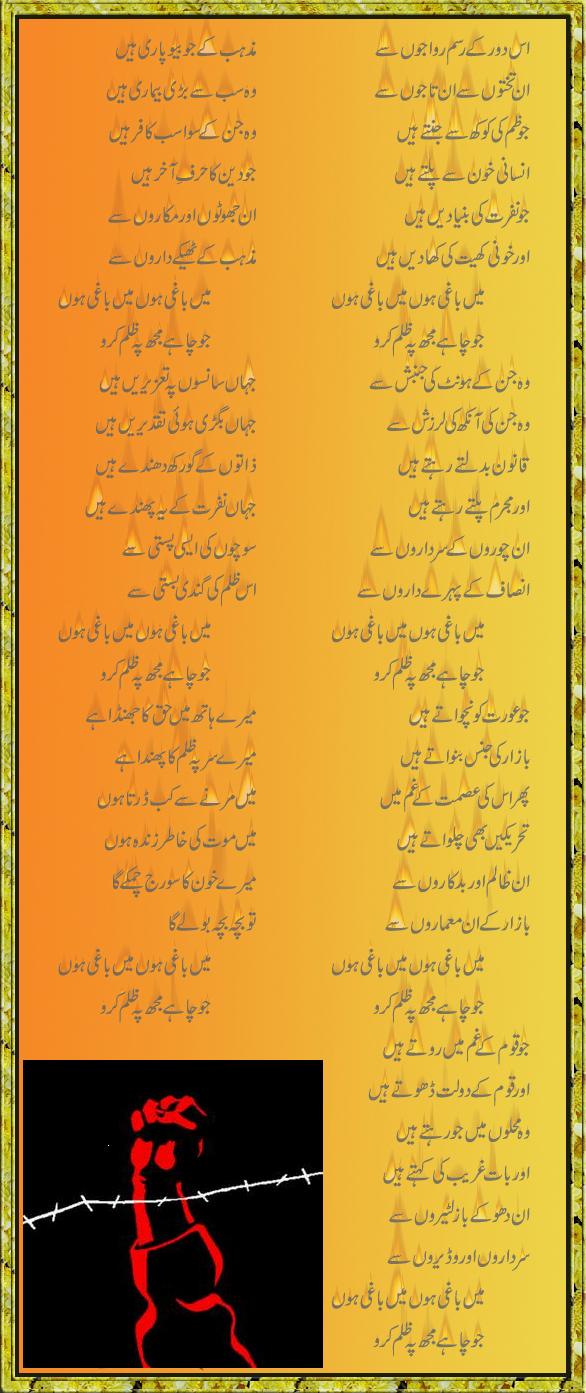 اس دور کے رسم رواجوں سے
ان تختوں سے ان تاجوں سے
جو ظلم کی کوکھ سے جنتے ہیں
انسانی خون سے پلتے ہیں
جو نفرت کی بنیادیں ہیں
اور خونی کھیت کی کھادیں ہیں
میں باغی ہوں میں باغی ہوں
جو چاہے مجھ پہ ظلم کرو
وہ جن کے ہونٹ کی جنبش سے
وہ جن کی آنکھ کی لرزش سے
قانون بدلتے رہتے ہیں
اور مجرم پلتے رہتے ہیں
ان چوروں کے سرداروں سے
انصاف کے پہرے داروں سے
میں باغی ہوں میں باغی ہوں
جو چاہے مجھ پہ ظلم کرو
جو عورت کو نچواتے ہیں
بازار کی جنس بنواتے ہیں
پھر اس کی عصمت کے غم میں
تحریکیں بھی چلواتے ہیں
ان ظالم اور بدکاروں سے
بازار کے ان معماروں سے
میں باغی ہوں میں باغی ہوں
جو چاہے مجھ پہ ظلم کرو
جو قوم کے غم میں روتے ہیں
اور قوم کے دولت ڈھوتے ہیں
وہ محلوں میں جو رہتے ہیں
اور بات غریب کی کہتے ہیں
ان دھوکے باز لٹیروں سے
سرداروں اور وڈیروں سے
میں باغی ہوں میں باغی ہوں
جو چاہے مجھ پہ ظلم کرو
مذہب کے جو بیوپاری ہیں
وہ سب سے بڑی بیماری ہیں
وہ جن کے سوا سب کافر ہیں
جو دین کا حرفِ آخر ہیں
ان جھوٹوں اور مکاروں سے
مذہب کے ٹھیکے داروں سے
میں باغی ہوں میں باغی ہوں
جو چاہے مجھ پہ ظلم کرو
جہاں سانسوں پہ تعزیریں ہیں
جہاں بگڑی ہوئی تقدیریں ہیں
ذاتوں کے گورکھ دھندے ہیں
جہاں نفرت کے یہ پھندے ہیں
سوچوں کی ایسی پستی سے
اس ظلم کی گندی بستی سے
میں باغی ہوں میں باغی ہوں
جو چاہے مجھ پہ ظلم کرو
میرے ہاتھ میں حق کا جھنڈا ہے
میرے سر پہ ظلم کا پھندا ہے
میں مرنے سے کب ڈرتا ہوں
میں موت کی خاطر زندہ ہوں
میرے خون کا سورج چمکے گا
تو بچہ بچہ بولے گا
میں باغی ہوں میں باغی ہوں
جو چاہے مجھ پہ ظلم کرو